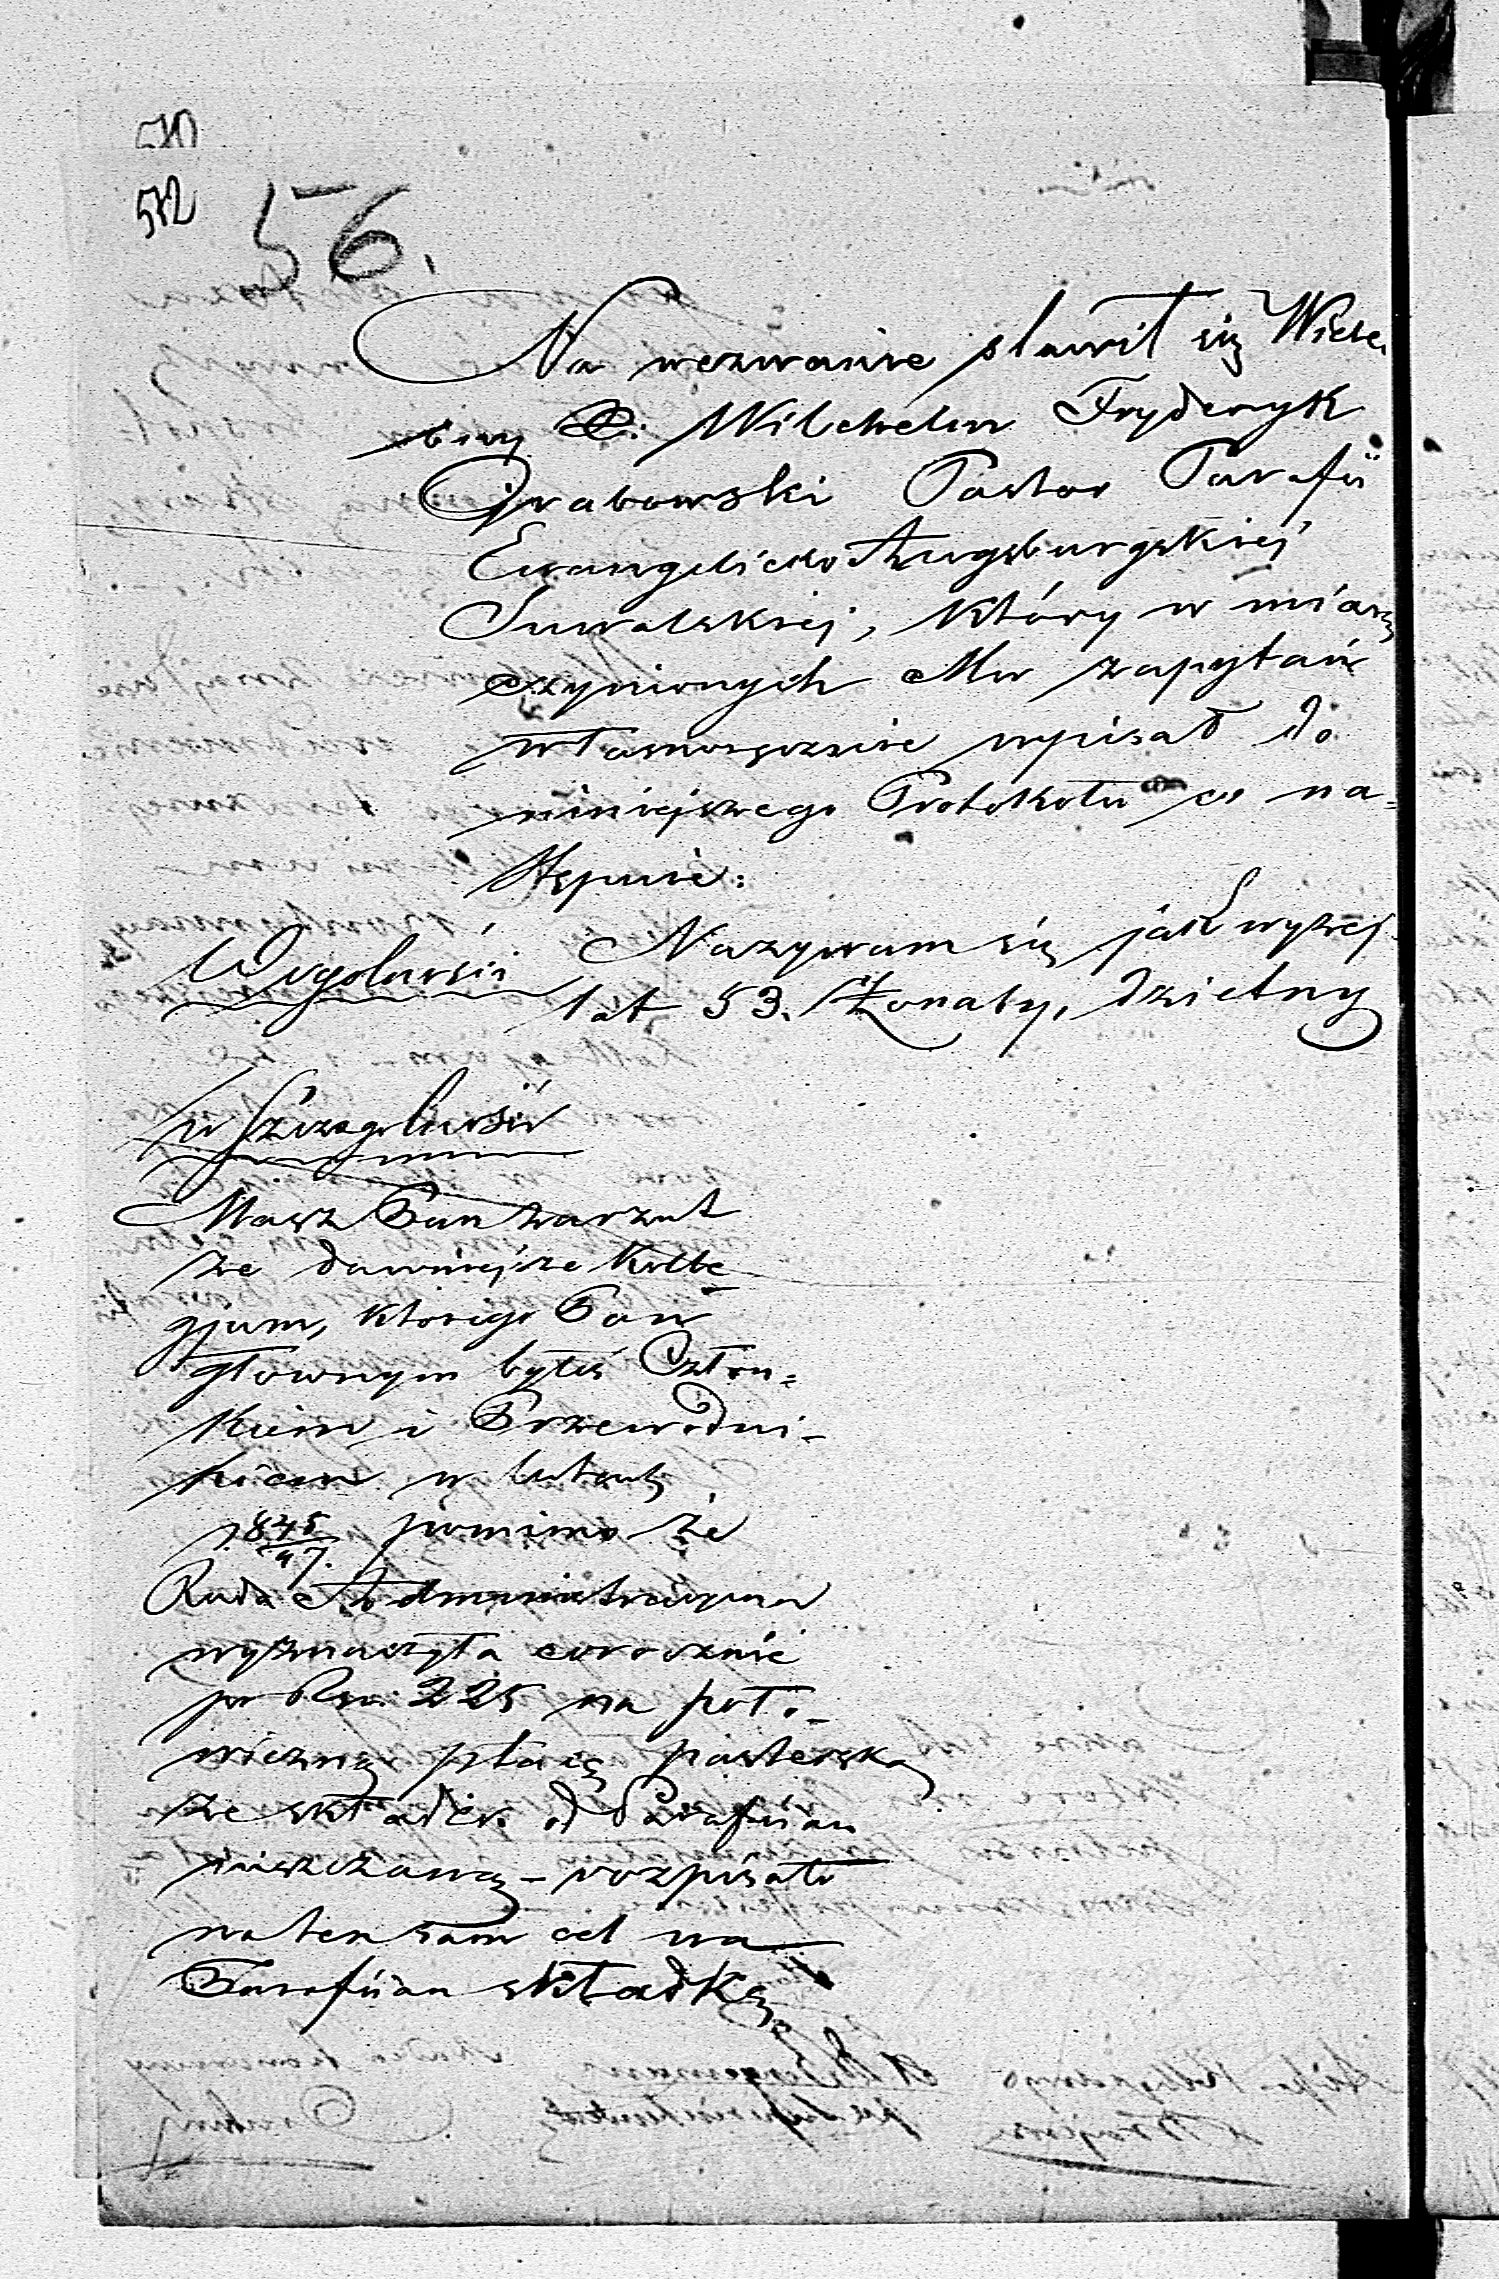 570
572
56.
Na wezwanie stawił się Wiele-
bny X: Wilchelm Fryderyk
Grabowski Pastor Parafii
Ewangelicko Augsburgskiej
Suwalskiej, który w miarę
czynionych Mu zapytań
własnoręcznie wpisał do
niniejszego Protokołu co na=
stępuie:
W ogolności Nazywam się jak wyżej
lat 53. Żonaty, dzietny
w Szczegolności
Masz Pan zarzut
że dawniejsze Kolle-
gjum, którego Pan
głownym byłeś Człon=
kiem i Przewodni-
kiem w latach
1845/47. pomimo że
Rada Administracyjna
wyznaczyła corocznie
po Rsr. 225 na poło-
wiczną płacę pasterską
ze składek od Parafian
mieszczaną – rozpisało
na ten sam cel na
Parafian składkę